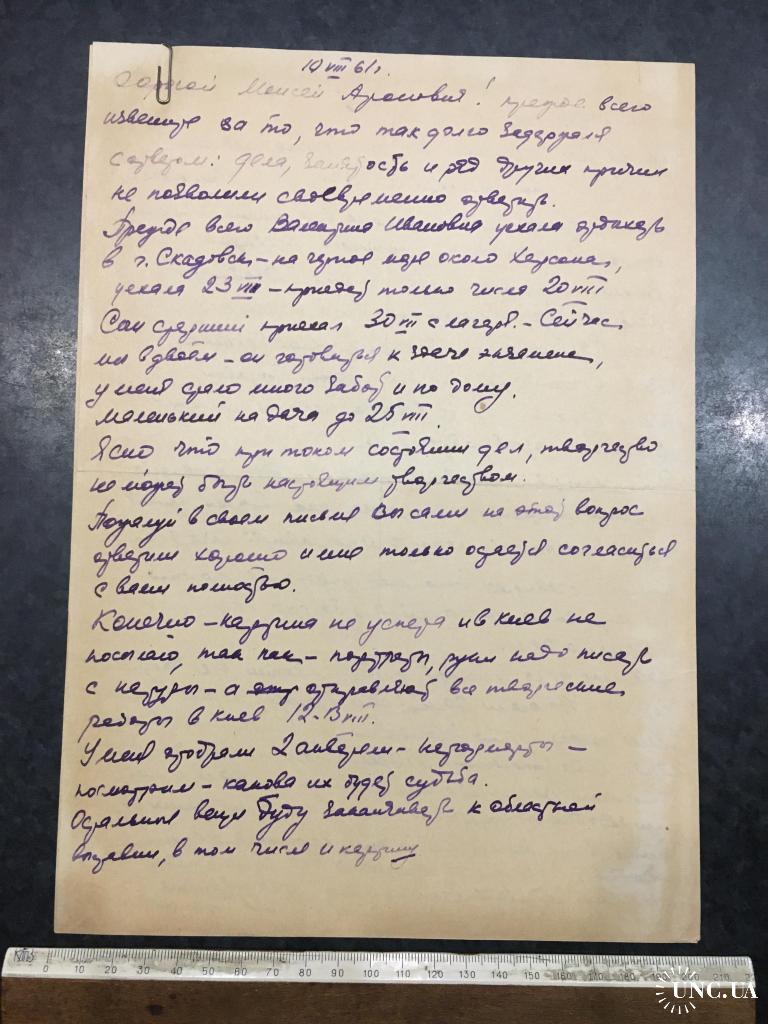 10 VIII 61 г.
Дорогой Моисей Аронович! прежде всего
извените за то, что так долго задержался
с ответом: дела, занятость и ряд других причин
не позволили своевременно ответить.
Прежде всего Валентина Ивановна уехала отдыхать
в г. Скадовск – на черное море около Херсона,
уехала 23 VII – приедет только числа 20 VIII
Сын средний приехал 30 VII с лагеря. – Сейчас
мы вдвоем – он готовится к сдаче экзамена,
у меня стало много забот и по дому.
Маленький на даче до 25 VIII.
Ясно что при таком состоянии дел, творчество
не может быть настоящим творчеством.
Пожалуй в своем письме Вы сами на этот вопрос
ответили хорошо и мне только остается согласиться
с Вами полностью.
Конечно – картина не успета и в Киев не
посылаю, так как – портреты, руки надо писать
с натуры – а отправляют все творческие
работы в Киев 12-13 VIII.
У меня отобрали 2 акварели – натюрморты –
посмотрим – какова их будет судьба.
Остальные вещи буду заканчивать к областной
выставки, в том числе и картину
0 10 20 30 40 50 60 70 80 90 100 110 120 130 140 150 160 170 180 190 200 210
UNC.UA